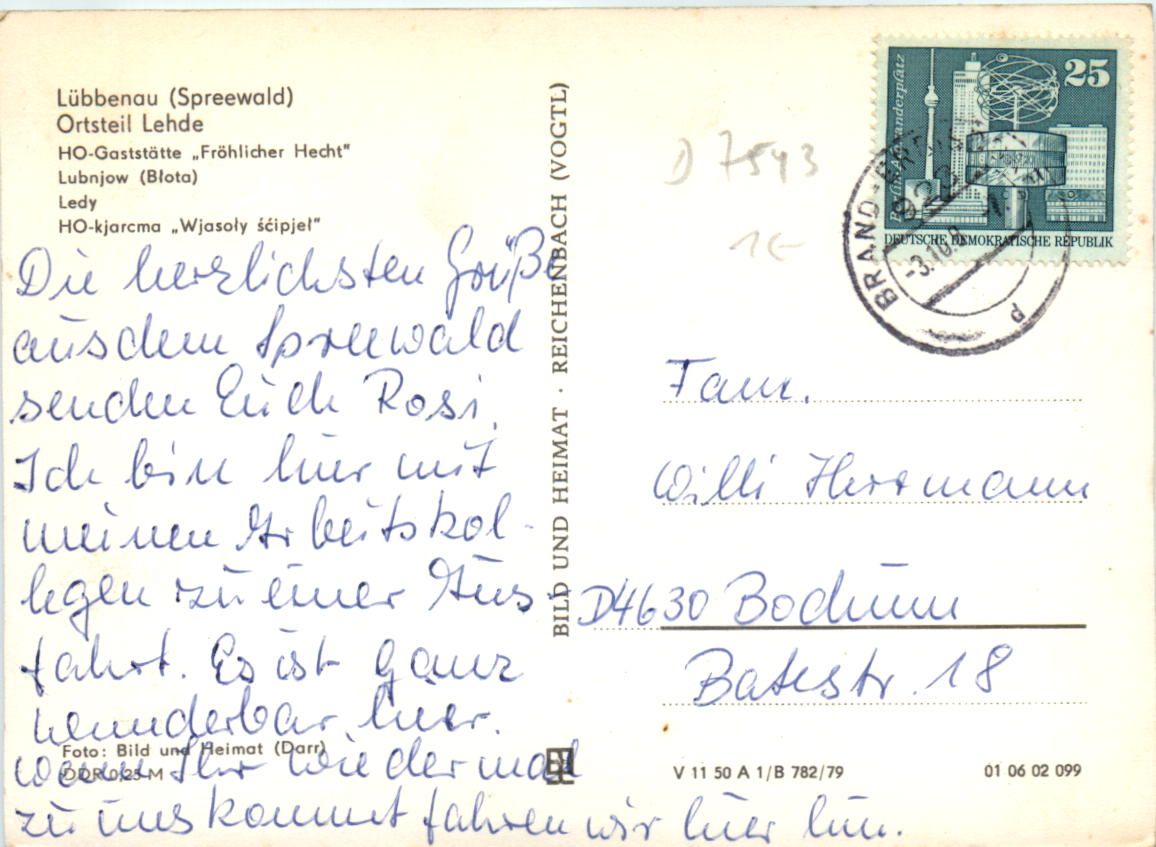 Lübbenau (Spreewald)
Ortsteil Lehde
HO-Gaststätte „Fröhlicher Hecht"
Lubnjow (Błota)
Ledy
HO-kjarcma „Wjasoły šćipjeł"
Die herzlichsten Grüße
aus dem Spreewald
senden Euch Rosi.
Ich bin hier mit
meinen Arbeitskol-
legen zu einer Aus-
fahrt. Es ist ganz
wunderbar hier.
wenn Ihr wieder mal
zu uns kommt fahren wir hier hin.
Foto: Bild und Heimat (Darr)
DDR 0,25 M
BILD UND HEIMAT · REICHENBACH (VOGTL)
D 7543
1€
Berlin Alexanderplatz
25
DEUTSCHE DEMOKRATISCHE REPUBLIK
BRAND-ERBISDORF
-3.10.8
Fam.
Willi Herrmann
D4630 Bochum
18
V 11 50 A 1/B 782/79
01 06 02 099